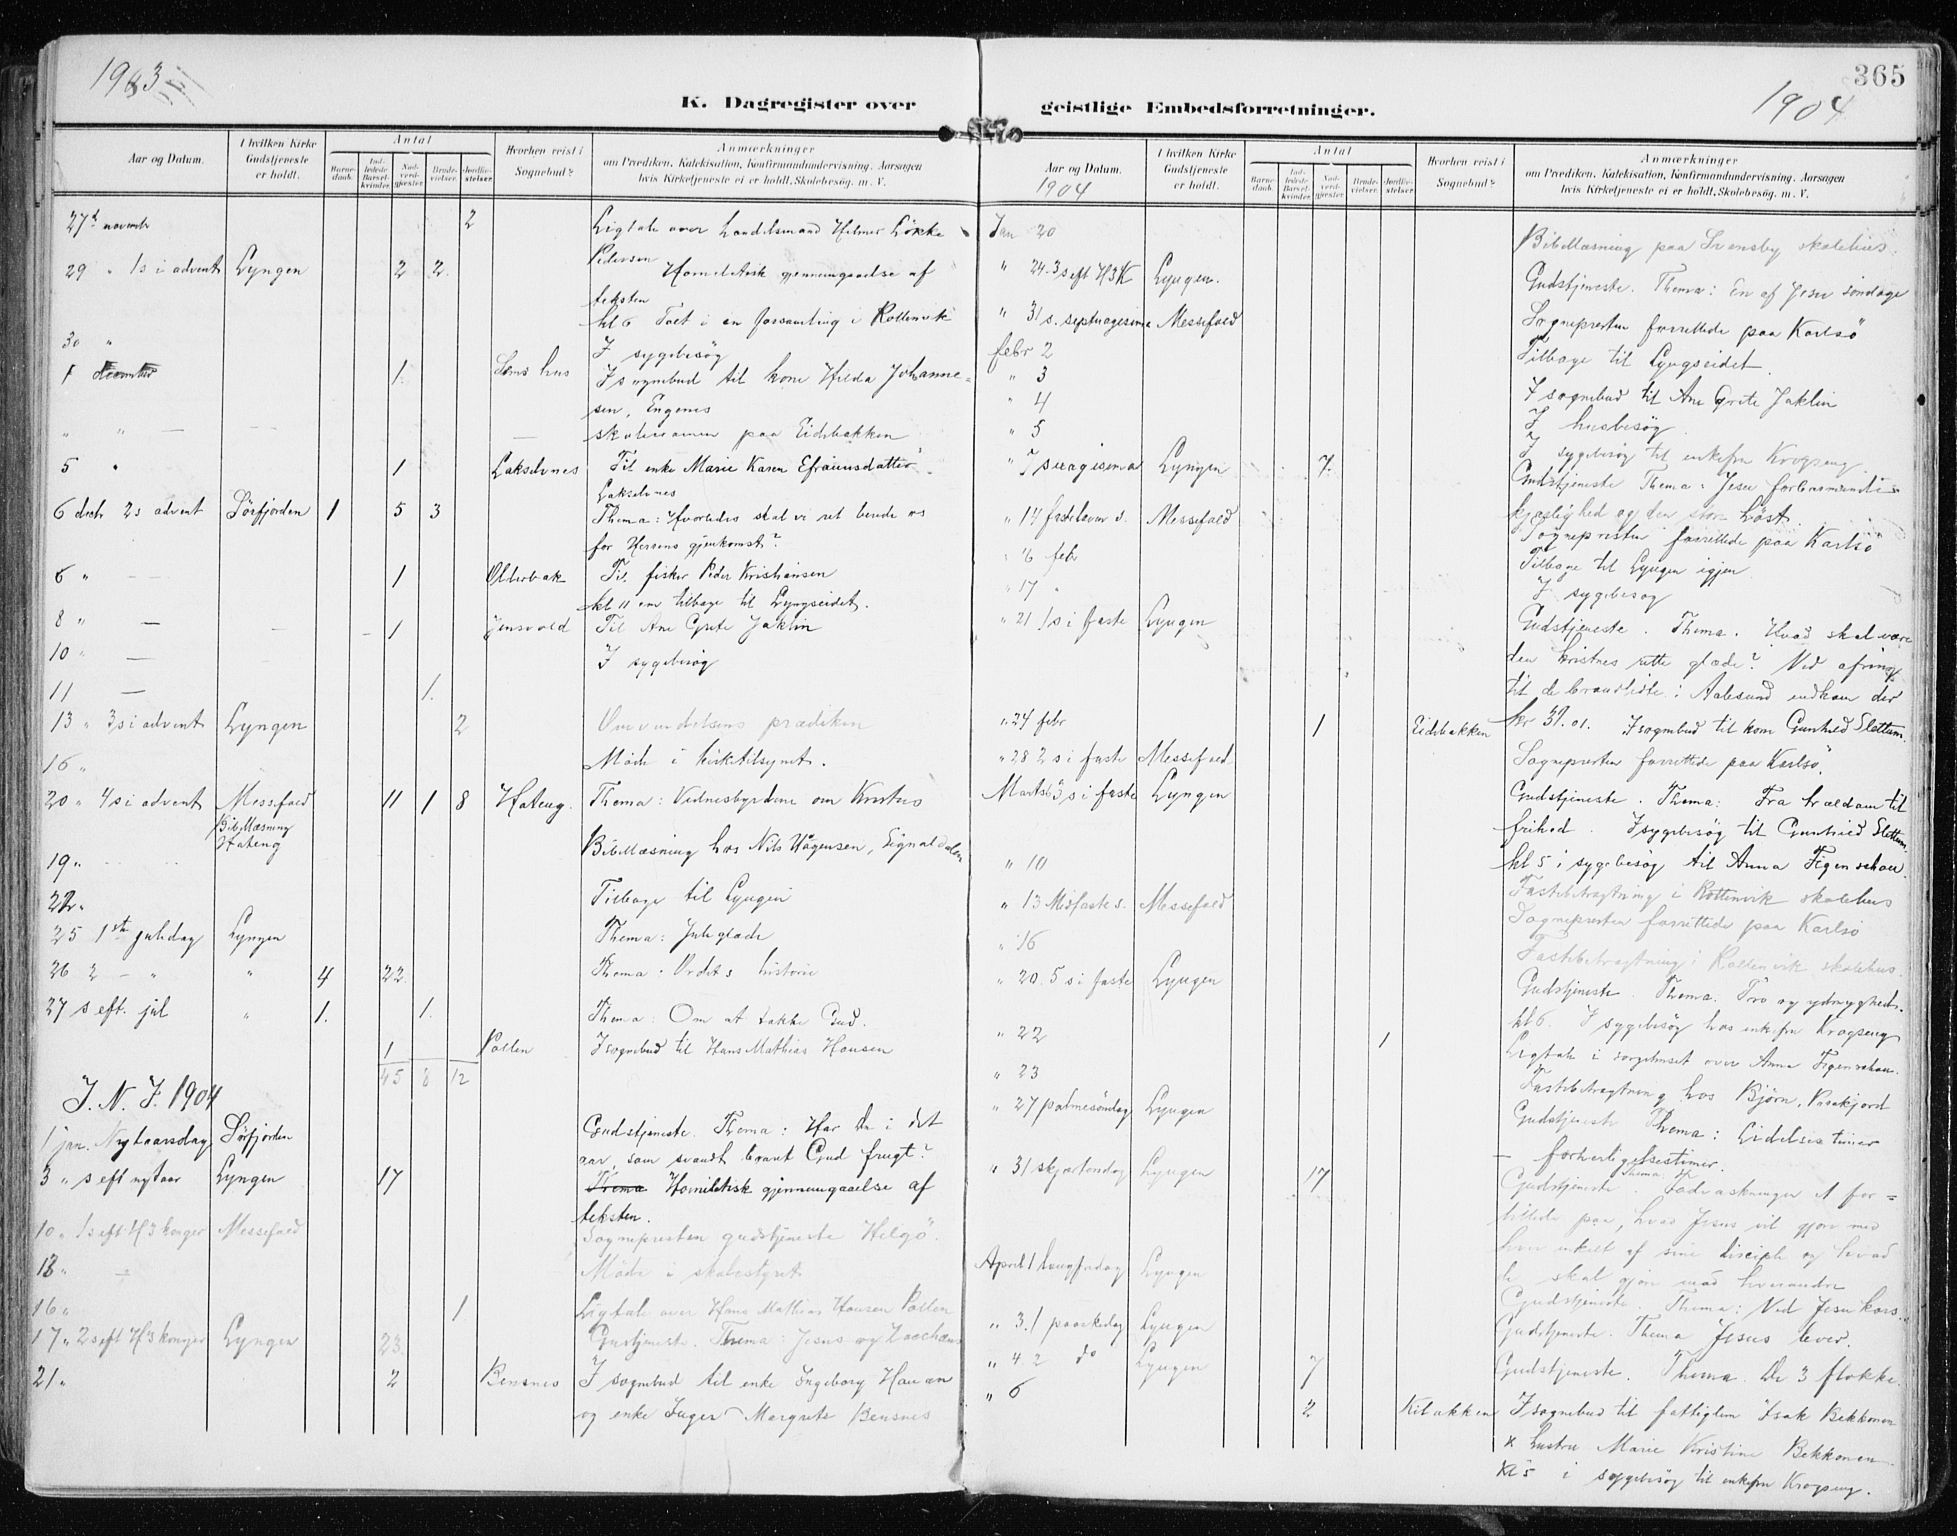 1903
365
1904
K. Dagregister over geistlige Embedsforretninger.
Aar og Datum.
I hvilken Kirke Gudstjeneste er holdt.
Antal
Barne-daab.
Ind-ledede Barsel-kvinder.
Nad-verd-gjester.
Brude-vielser.
Jordfæ-stelser.
Hvorhen reist i Sognebud?
Anmærkninger
om Prædiken, Katekisation, Konfirmandundervisning, Aarsagen
hvis Kirketjeneste ei er holdt, Skolebesøg. m. V.
27d novemb 2 Ligtale over Handelsmand Helmer Løkke
Pedersen
29 " 1 s i advent Lyngen 2 2 Homiletisk gjennemgaaelse af
teksten
kl 6 Talt i en forsamling i Rottenvik
30 " I sygebesøg
1 december 1 Sems hus I sognebud til kone Hilda Johanne-
sen, Engenes
" " — skoleexamen paa Eidebakken
5 " 1 Lakselvnes Til enke Marie Karen Efraimsdatter
Lakselvnes
6 decb 2 s advent Sørfjorden 1 5 3 Thema: Hvorledes skal vi ret berede os
for Herrens gjenkomst?
6 " 1 Olderbak Til fisker Peder Kristiansen
kl 11 em tilbage til Lyngseidet.
8 " — 1 Jensvold Til Ane Grete Jaklin
10 " — I sygebesøg
11 — 1.
13 " 3 s i advent Lyngen 2 Omvendelsens prædiken
16 " Møde i kirketilsynet.
20 " 4 s i advent Messefold 11 1 8 Hateng. Thema: Vidnesbyrdene om Kristus
Bibellæsning
Hateng
19 " Bibellæsning hos Nils Hågensen, Signaldalen
22 " Tilbage til Lyngen
25 1ste juledag Lyngen Thema: Juleglæde
26 2 — " " 4 22 Thema: Ordets historie
27 s eft. jul " 1. 1. Thema: Om at takke Gud.
1 Pollen I sognebud til Hans Mathias Hansen
45 8 12
I. N. J. 1904
1 jan. Nytaarsdag Sørfjorden Gudstjeneste. Thema: Har Du i det
aar, som svandt baaret Gud frugt?
3 " s eft nytaar Lyngen 17 Thema Homiletisk gjennemgaaelse af
teksten.
10 " 1 s eft H 3 konger Messefold Sognepresten gudstjeneste Helgø.
13 " — Møde i skolestyret
16 " 1 Ligtale over Hans Mathias Hansen Pollen
17 " 2 s eft H 3 konger Lyngen 23. Gudstjeneste. Thema: Jesus og
21 " 2 Bensnes I sognebud til enke Ingeborg Hansen
og enke Inger Margrete Bensnes
Aar og Datum.
1904
I hvilken Kirke Gudstjeneste er holdt.
Antal
Barne-daab.
Ind-ledede Barsel-kvinder.
Nad-verd-gjester.
Brude-vielser.
Jordfæ-stelser.
Hvorhen reist i Sognebud?
Anmærkninger
om Prædiken, Katekisation, Konfirmandundervisning, Aarsagen
hvis Kirketjeneste ei er holdt, Skolebesøg. m. V.
Jan 20 Bibellæsning paa Svensby skolehus.
" 24. 3 s eft H3K Lyngen. Gudstjeneste. Thema: En af Jesu søndage
" 31 s. septuagesima Messefold Sognepresten forrettede paa Karlsø
febr 2 Tilbage til Lyngseidet.
" 3 I sognebud til Ane Grete Jaklin
" 4 I husbesøg
" 5 I sygebesøg til enkefru Krogseng
" 7 sexagesima Lyngen 7. Gudstjeneste Thema: Jesu
kjærlighed og den store
" 14 fastelavn s. Messefold Sognepresten forrettede paa Karlsø
" 16 febr Tilbage til Lyngen igjen
" 17 " I sygebesøg
" 21 1 s i faste Lyngen Gudstjeneste. Thema. Hvad skal være
den kristnes rette glæde? Ved ofring
til de brandlidte i Aalesund indkom der
" 24 febr 1 Eidebakken kr 31.01. I sognebud til kone Gunhild Slettum.
" 28 2 s i faste Messefold Sognepresten forrettede paa Karlsø.
Marts 6 3 s i faste Lyngen Gudstjeneste. Thema: Fra trældom til
frihed. I sygebesøg til Gunhild Slettum.
" 10 kl 5 i sygebesøg til Anna Figenschau
Fastebetragtning i Rottenvik skolehus
" 13 Midfaste s. Messefold Sognepresten forrettede paa Karlsø
" 16 Fastebetragtning i Rottenvik skolehus.
" 20. 5 s i faste Lyngen Gudstjeneste. Thema. Tro og ydmyghed.
kl 6. I sygebesøg hos enkefru Krogseng
" 22 1 Ligtale i sørgehuset over Anna Figenschau.
" 23 Fastebetragtning hos Bjørn,
" 27 palmesøndag Lyngen Gudstjeneste Thema: Lidelses timer
— forherligelsestimer.
" 31 skjærtorsdag Lyngen 17 Gudstjeneste. Thema:
paa, hvad Jesus vil gjøre med
hver enkelt af sine disciple og hvad
de skal gjøre mod hverandre
April 1 langfredag Lyngen Gudstjeneste. Thema: Ved Jesu kors.
" 3. 1 paaskedag Lyngen Gudstjeneste. Thema Jesus lever.
" 4 2 do Lyngen 7 Gudstjeneste. Thema. De 3 flokke.
" 6 2 Kilbakken I sognebud til fattiglem Isak Bekkonen
x hustru Marie Kristine Bekkonen
Kl 5 i sygebesøg til enkefru Krogseng.